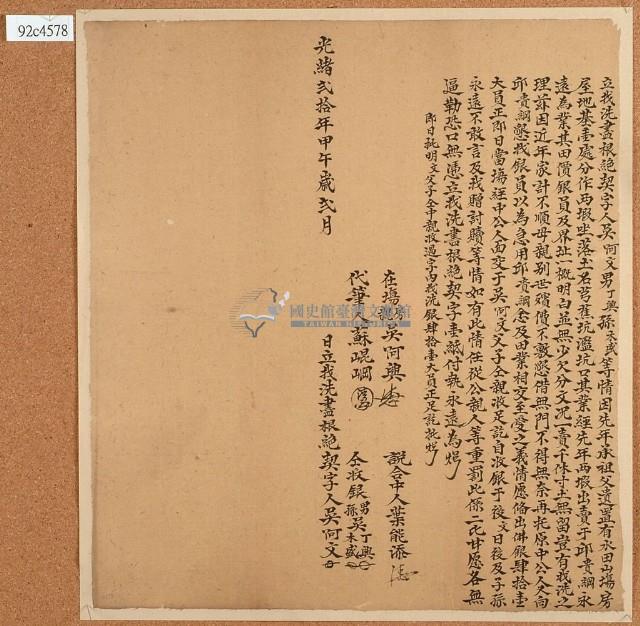 92c4578
立找洗盡根絕契字人吳阿文男丁興孫木盛等情因先年承祖父遺置有永田山塲房
屋地基壹處分作兩瑕坐落土名芎蕉坑濫坑口其業經先年兩瑕出賣于邱貴綢永
遠為業其田價銀員及界址一概明白並無少欠分文况一賣千休寸土無留豈有找洗之
理茲因近年家計不順母親別世殯費不敷懇借無門不得無奈再托原中公人欠向
邱貴綢懇找銀員以為急用邱貴綢念及田業相交至愛之義情愿備出佛銀肆拾壹
大員正即日當塲經中公人面交于吳阿文父子仝親收足訖自收銀于後文日後及子孫
永遠不敢言及找贈討贖等情如有此情任從公親人等重罰此係二比甘愿各無
逼勒恐口無憑立找洗盡根絕契字壹紙付執永遠為炤
即日批明文父子仝中親收過字內找洗銀肆拾壹大員正足訖批炤
說合中人葉能添
在塲說吳阿興
仝收銀男孫吳丁興木盛
代筆人蘇崐崗
光緒貳拾年甲午歲貳月 日立找洗盡根絕契字人吳阿文
國史館臺灣文獻館
TAIWAN HISTORICA